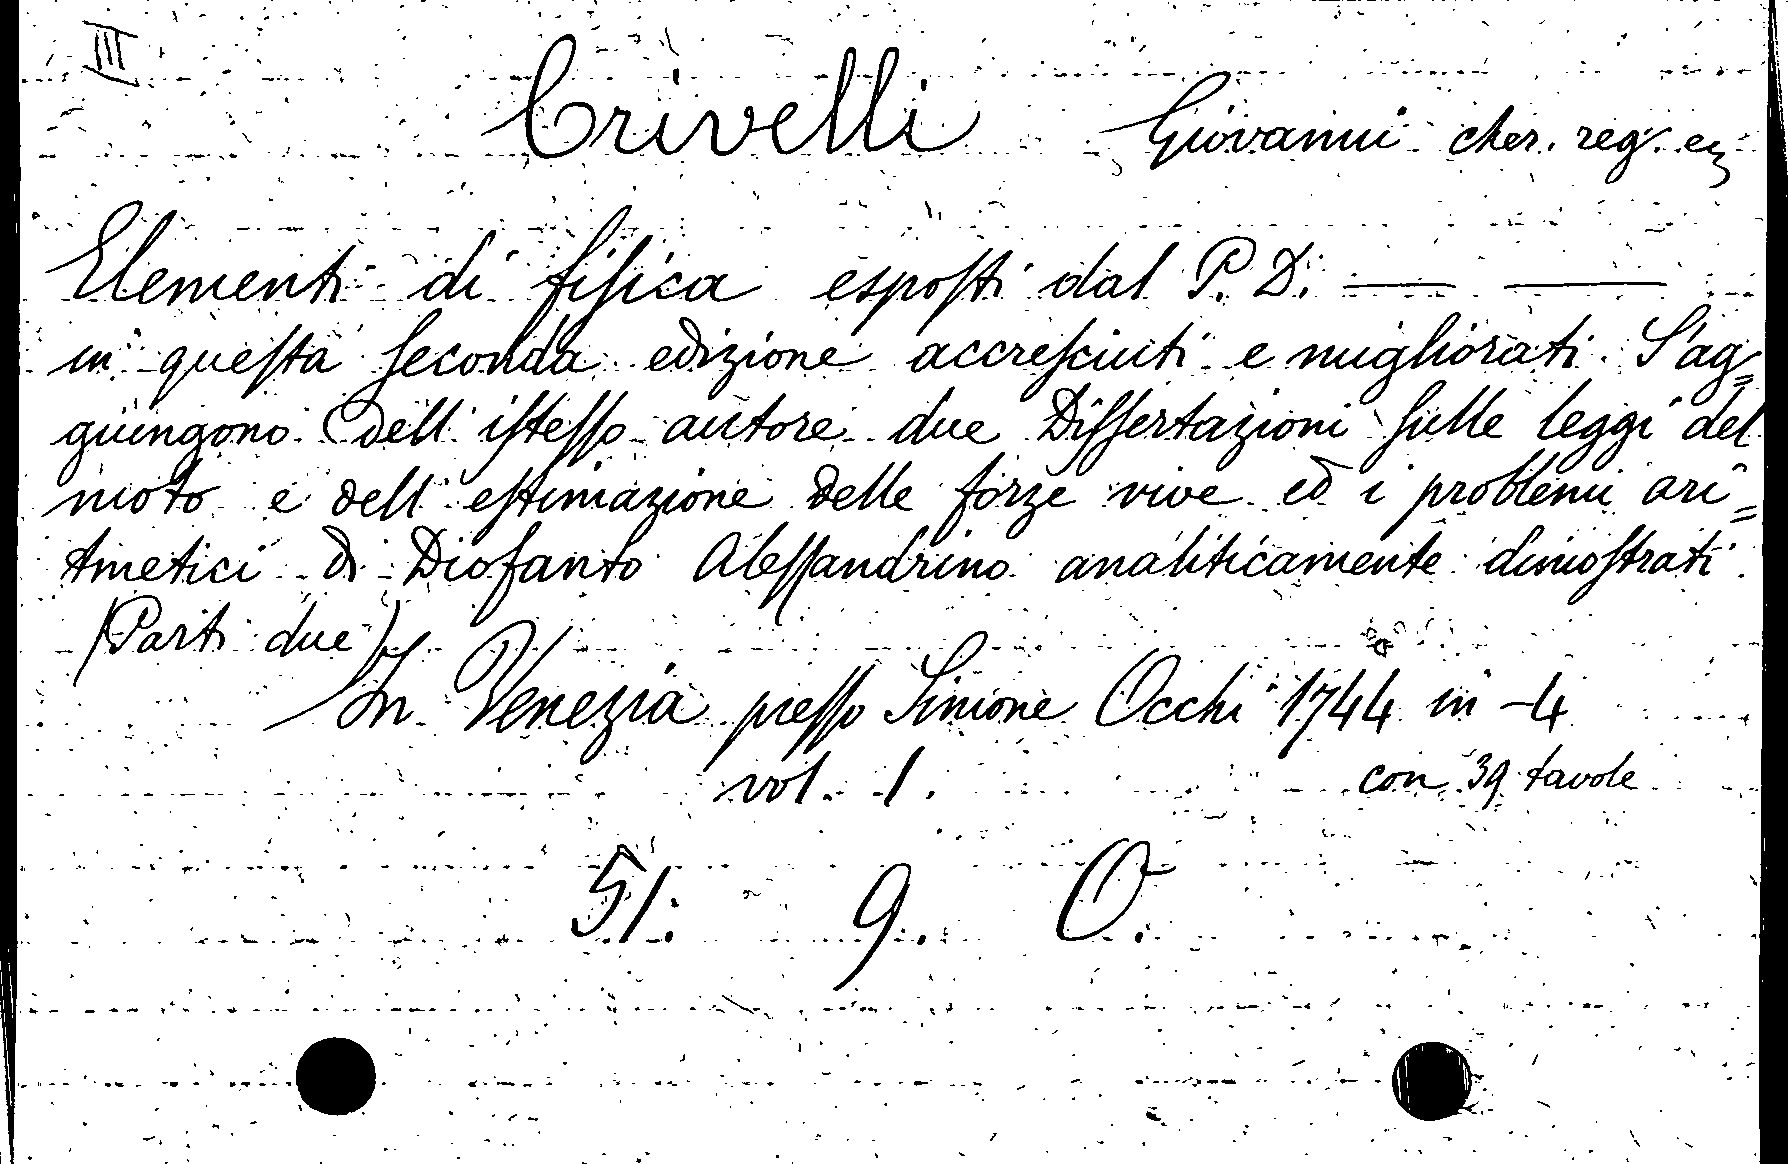 III
Crivelli Giovanni cher. reg. ez
Elementi di fiſica espoſti dal P. D. — —
in queſta ſeconda edizione accreſciuti e migliorati. S'ag=
giungono dell' iſteſſo autore due Diſſertazioni ſulle leggi del
moto e dell' eſtimazione delle forze vive ed i problemi ari=
tmetici di Diofanto Aleſſandrino analiticamente dimoſtrati.
(Parti due)
In Venezia preſſo Simone Occhi 1744 in -4
vol. 1.
con 39 tavole
51. 9. O.